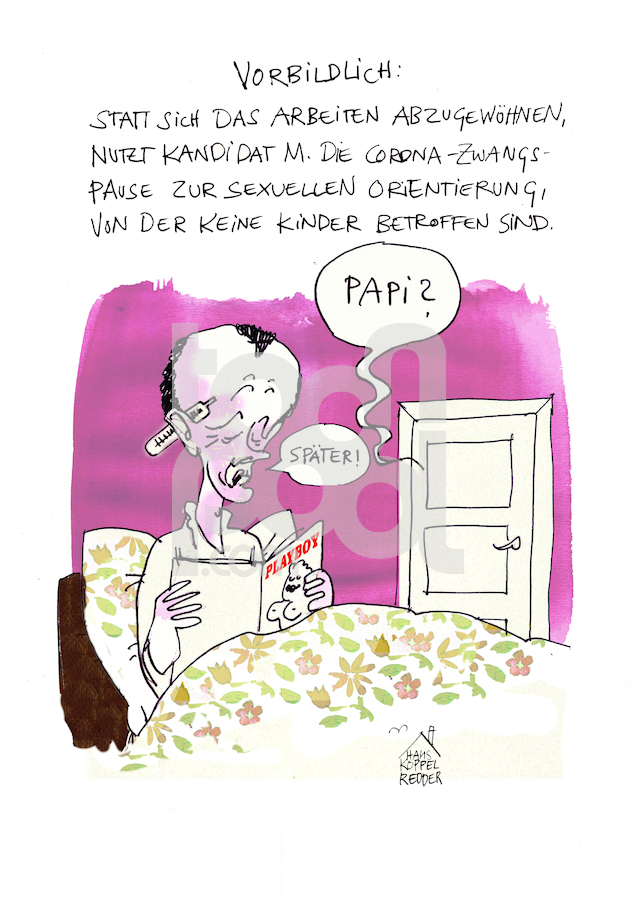 VORBILDLICH:
STATT SICH DAS ARBEITEN ABZUGEWÖHNEN,
NUTZT KANDIDAT M. DIE CORONA-ZWANGS-
PAUSE ZUR SEXUELLEN ORIENTIERUNG,
VON DER KEINE KINDER BETROFFEN SIND.
PAPI?
SPÄTER!
PLAYBOY
HAUS
KOPPEL
REDDER